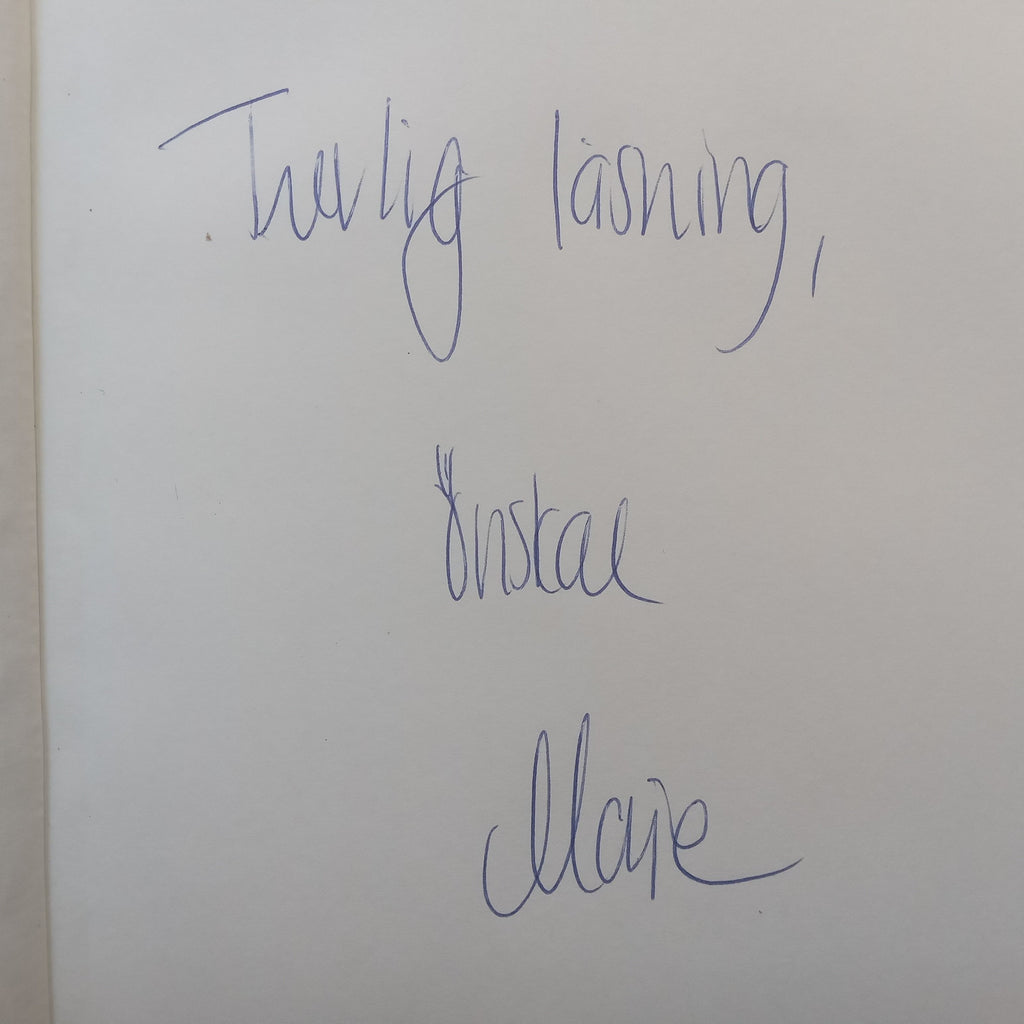 Trevlig läsning,
önskar
Marie